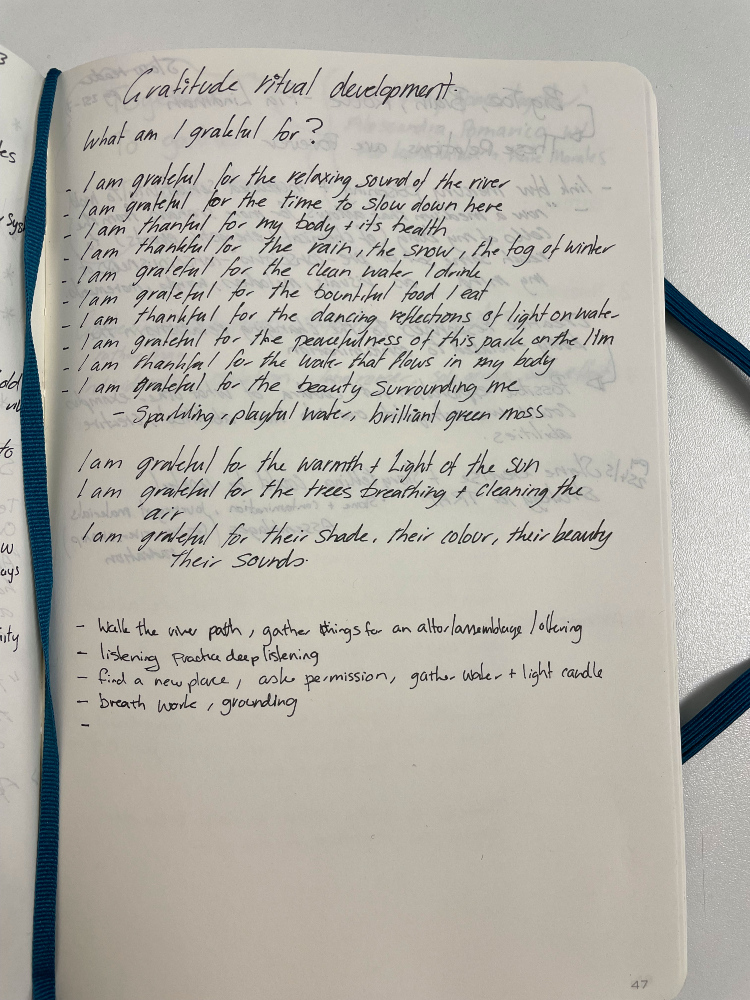 Gratitude ritual development.
What am I grateful for?
- I am grateful for the relaxing sound of the river
- I am grateful for the time to slow down here
- I am thanful for my body + its health
- I am thankful for the rain, the snow, the fog of winter
- I am grateful for the clean water I drink
- I am grateful for the bountiful food I eat
- I am thankful for the dancing reflections of light on water
- I am grateful for the peacefulness of this park on the Ilm
- I am thankful for the water that flows in my body
- I am grateful for the beauty surrounding me
- Sparkling, playful water, brilliant green moss
I am grateful for the warmth + Light of the sun
I am grateful for the trees breathing + cleaning the
air
I am grateful for their shade, their colour, their beauty
their sounds.
- Walk the river path, gather things for an altor/assemblage/offering
- listening practice deep listening
- find a new place, ask permission, gather water + light candle
- breath work, grounding
-
47